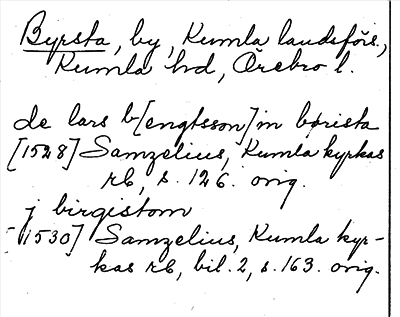 Byrsta, by, Kumla landsförs.,
Kumla hd, Örebro l.
de lars b[engtsson] in børista
[1528] Samzelius, Kumla kyrkas
rb, s. 126. orig.
j birgistom
1530] Samzelius, Kumla kyr-
kas rb, bil. 2, s. 163. orig.